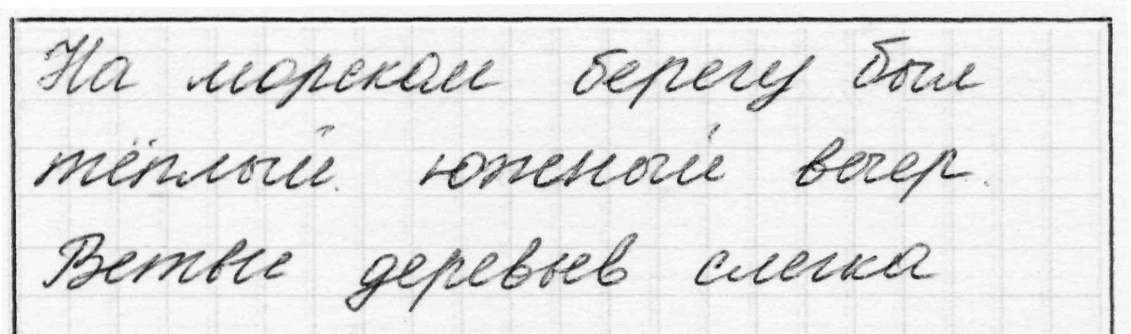 На морском берегу был
тёплый южный вечер.
Ветви деревьев слегка